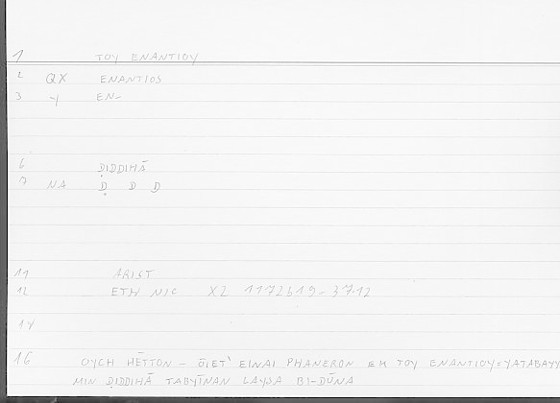 1 TOY ENANTIOY
2 QX ENANTIOS
3 Y EN-
6 ḌIDDIHĀ
7 NA Ḍ D D̲
11 ARIST
12 ETH NIC X2 1172b19-37.12
14
16 OYCH HĒTTON – ŌIET' EINAI PHANERON EK TOY ENANTIOY=YATABAYY
MIN ḌIDDIHĀ TABYĪNAN LAYSA BI-DŪNA